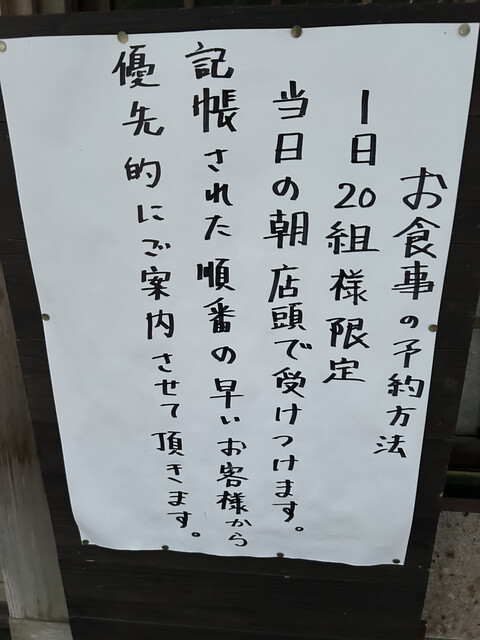 お食事の予約方法
1日20組様限定
当日の朝店頭で受けつけます。
記帳された順番の早いお客様から
優先的にご案内させて頂きます。